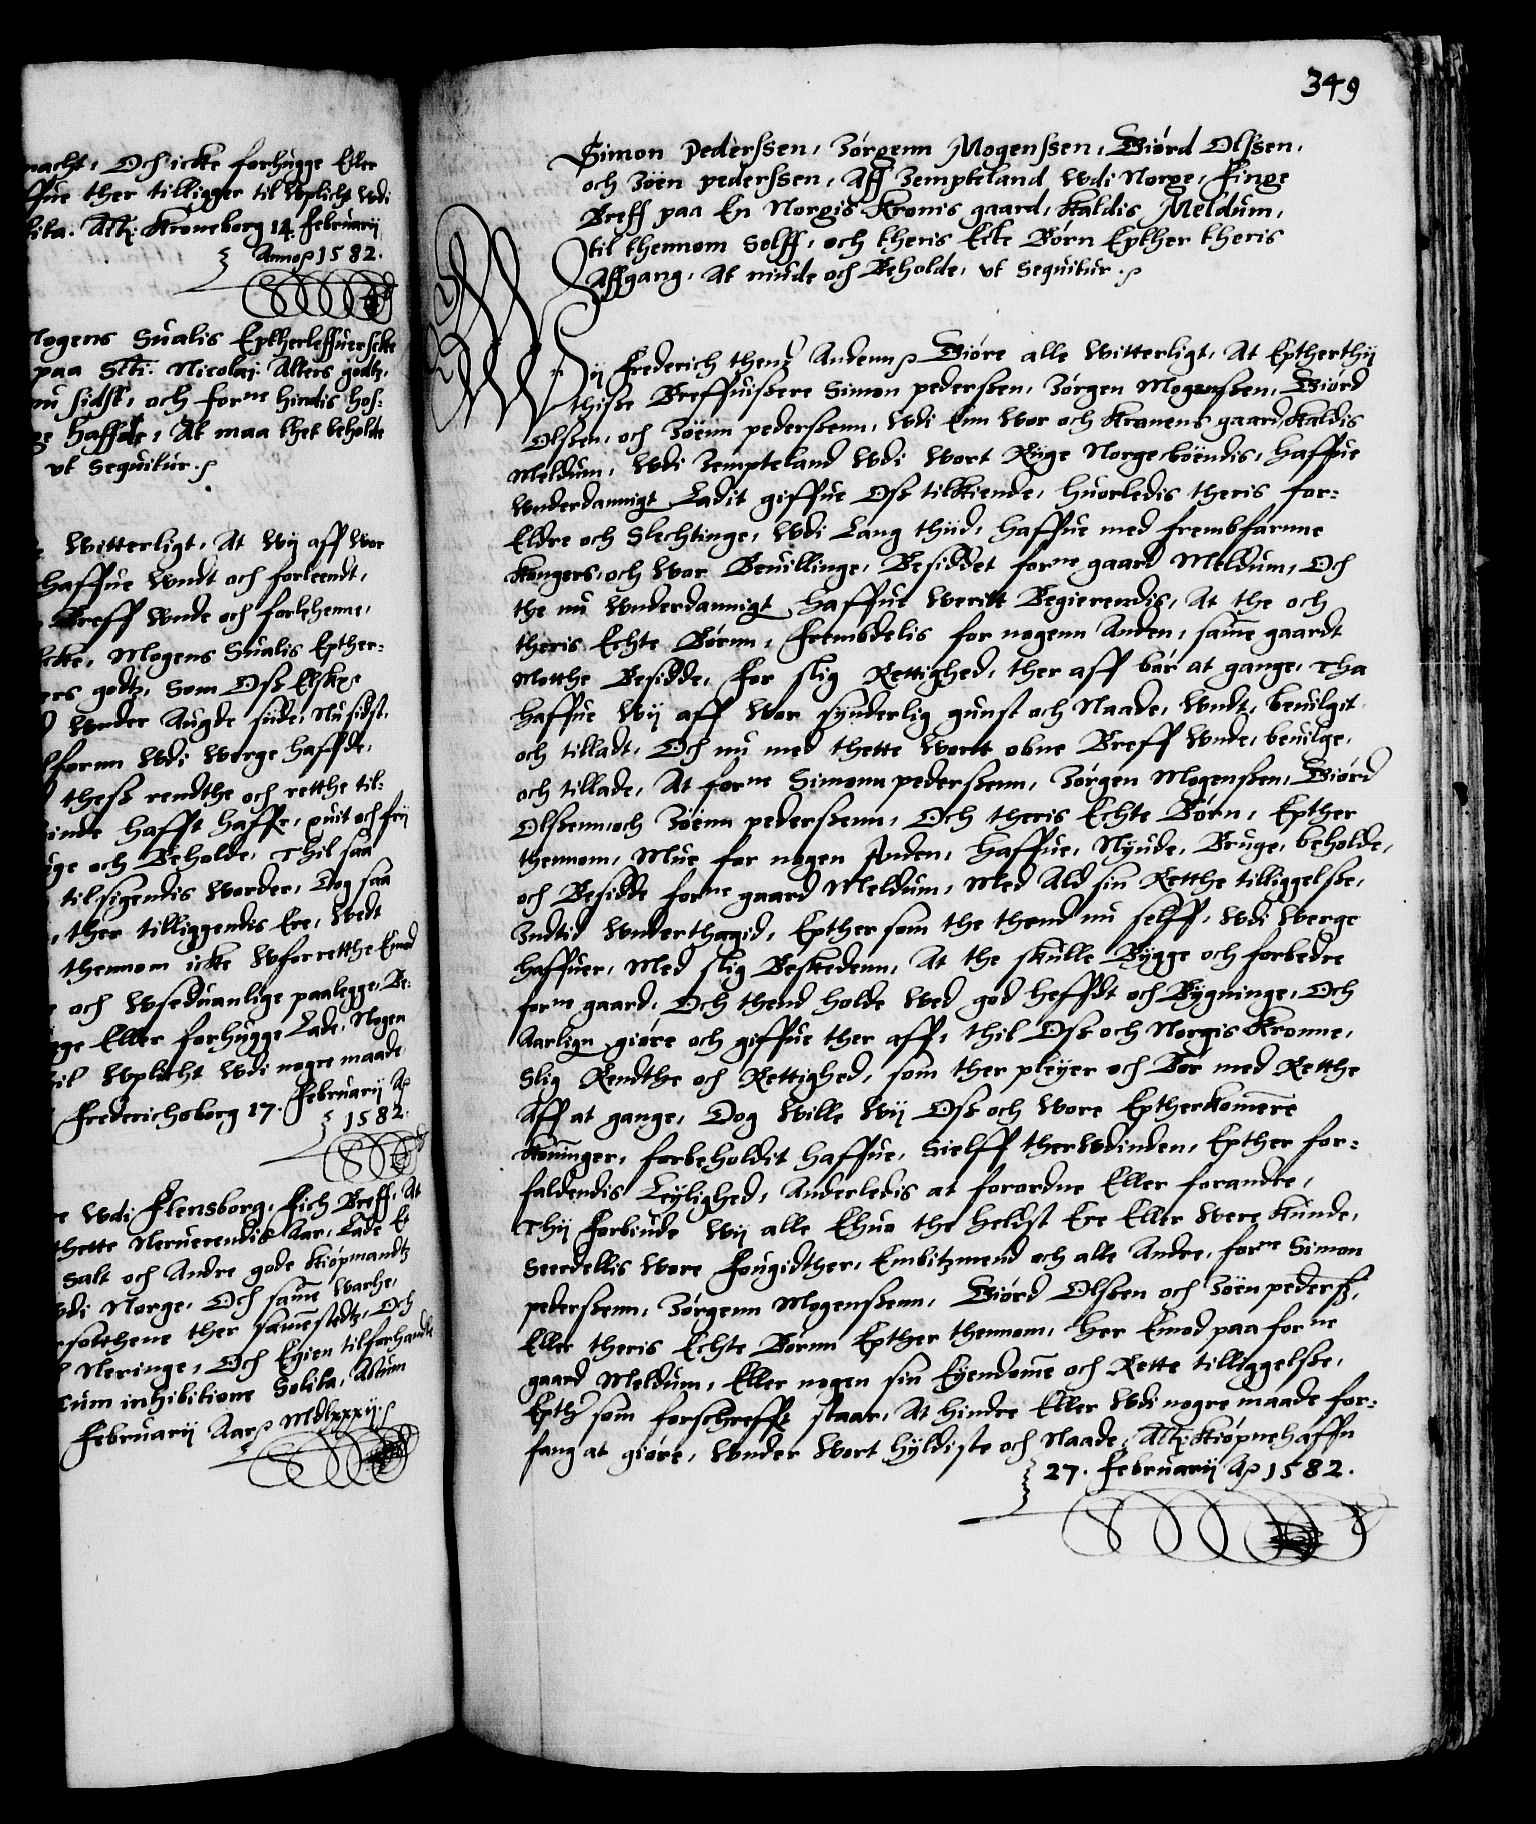 nacht, Och icke forhugge Eller
ffue ther tilligger til Vplicht Vdi
lita. Actz Kroneborg 14. februarij
Anno 1582.
Mogens Sualis Eptherleffuerscke
paa Scti. Nicolaj Alters godtz,
nu sidst, och forne hindis hos-
haffde, At maa thet beholde
vt Sequitur.
Witterligt, At Wij aff Wor
haffue Wndt och forleendt,
Breff Wnde och forlehene,
Mogens Sualis Epther-
godtz, Som Oss Elske
Wnder Augde siude, Nu sidst,
Wdi Werge haffde,
thess rendthe och retthe til-
hafft haffr, quit och frij
och Beholde, Thil saa
tilsigendis Worder, Dog saa
ther tilliggendis Ere, Wedt
thennom icke Wforretthe Emod
och Wseduanlige paalegge, Be-
Eller forhugge Lade, Nogen
Wplicht Wdi nogre maade
Frederichsborg 17. Februarij Ao
1582.
Wdi Flensborg, Fich Breff, At
thette Neruerendis Aar, Lade Et
Salt och Andre gode Kiøpmandtz
Wdi Norge, Och same Warhe,
ther samestedtz, Och
Neringe, Och Egien tilforhandle
Cum inhibitione Solita, Actum
Februarij Aar Mdlxxxij.
349
Simon Pederssen, Jørgenn Mogenssen, Giørd Olssen,
och Jöen pederssen, Aff Jempteland Wdi Norge, Finge
Breff paa En Norgis Kronis gaard, Kaldis Meldum,
til thennom Selff, och theris Ecte Børn Epther theris
Affgang, At niude och Beholde, vt Sequitur.
Wij Frederich thend Andenn Giøre alle Witterligt, At Eptherthij
thisse Breffuissere Simon pederssen, Jørgen Mogenssen, Giørd
Olssen, och Jöenn pederssenn, Wdi Enn Wor och Kronens gaard Kaldis
Meldum, Wdi Jempteland Wdi Wort Rige Norge boendis, haffue
Wnderdannigt Ladit giffue Oss tilkiende, huorledis theris for-
Eldre och Slechtinge, Wdi Lang thiid, haffue med frembfarnne
Kongers, och Wor Beuillinge, Besiddet forne gaard Meldum, Och
the nu Wnderdannigt haffue Weritt Begierendis, At the och
theris Echte Børnn, Frembdelis for nogenn Anden, same gaardt
Motthe Besidde, For slig Rettighed, ther aff bør at gange, Tha
haffue Wij aff Wor synderlig gunst och Naade, Wndt, beuilgit
och tilladt, Och nu med thette Wortt obne Breff Wnde, beuilge,
och tillade, At forne Simonn pederssenn, Jørgen Mogenssen, Giørd
Olssenn, och Jöenn pederssenn, Och theris Echte Børn, Epther
thennom, Mue for nogen Anden, haffue, Nyude, Bruge, beholde,
och Besidde forne gaard Meldum, Med Ald sin Retthe tilliggelsse,
Indtid Wnderthagid, Epther som the thend nu selff, Wdi Werge
haffuer, Med slig Beskedenn, At the skulle Bygge och forbedre
forne gaard, Och thend holde Wed god heffdt och Bygninge, Och
Aarlign giøre och giffue ther aff, thil Oss och Norgis Kronne,
Slig Rendthe och Rettighed, som ther pleyer och Bør med Retthe
Aff at gange, Dog Wille Wij Oss och Wore Eptherkomere
Konninger, forbeholdit haffue, Sielff therWdinden, Epther for-
faldendis Leylighed, Anderledis at forordne Eller forandre,
Thij Forbiude Wij alle Ehuo the heldst Ere Eller Were Kunde,
Seerdellis Wore Fougidther, Embitzmend och alle Andre, forne Simon
pederssenn, Jørgenn Mogenssenn, Giørd Olssen och Jöen pederss,
Eller theris Echte Børnn Epther thennom, her Emod paa forne
gaard Meldum, Eller nogen sin Eyendome och Rette tilliggelsse,
Epthr som forschreffit staar, At hindre Eller Wdi nogre maade for-
fang at giøre, Wnder Wort hyldiste och Naade, Actz Kiøpnehaffn
27. Februarij Ao 1582.